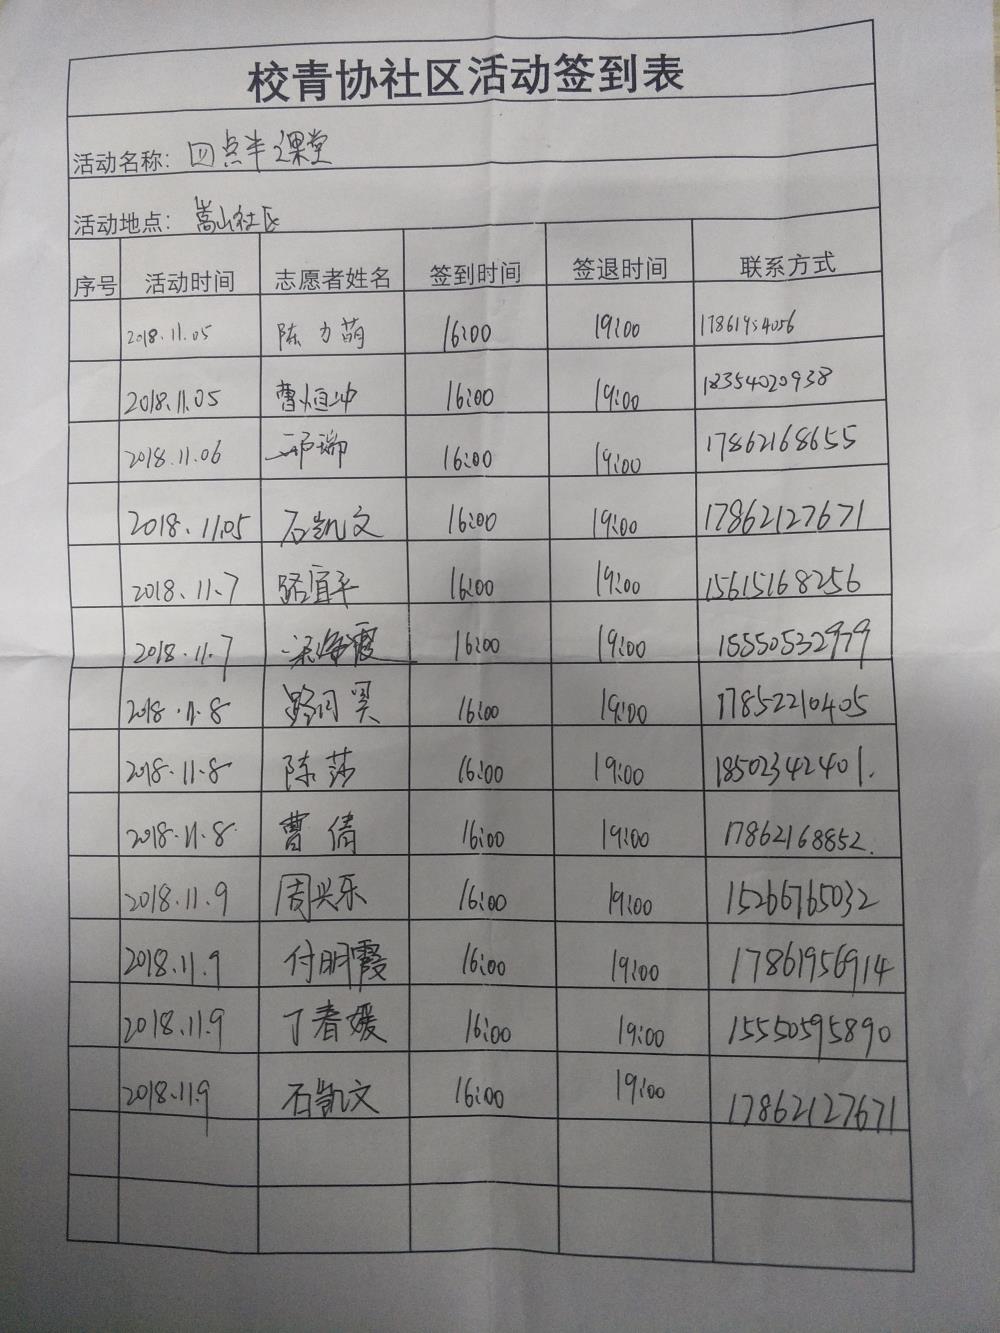 校青协社区活动签到表
活动名称: 四点半课堂
活动地点: 嵩山社区
序号 活动时间 志愿者姓名 签到时间 签退时间 联系方式
2018.11.05 陈力萌 16:00 19:00
2018.11.05 曹恒冲 16:00 19:00 18354020938
2018.11.06 瑞 16:00 19:00 17862168655
2018.11.05 石凯文 16:00 19:00 17862127671
2018.11.7 路宜平 16:00 19:00 15615168256
2018.11.7 霞 16:00 19:00 15550532979
2018.11.8 路同昊 16:00 19:00 17852210405
2018.11.8 陈莎 16:00 19:00 18502342401.
2018.11.8 曹倩 16:00 19:00 17862168852.
2018.11.9 周兴乐 16:00 19:00 15266765032
2018.11.9 付明霞 16:00 19:00 17861956914
2018.11.9 丁春媛 16:00 19:00 15550595890
2018.11.9 石凯文 16:00 19:00 17862127671